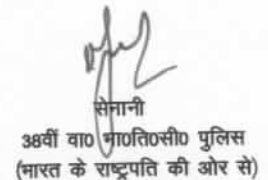 सेनानी
38वीं वा0 भा0ति0सी0 पुलिस
(भारत के राष्ट्रपति की ओर से)